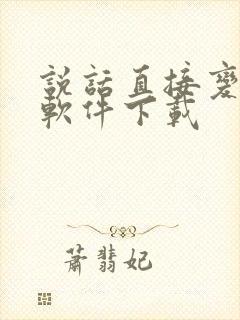 説話直接變
軟件下載
蕭翡妃